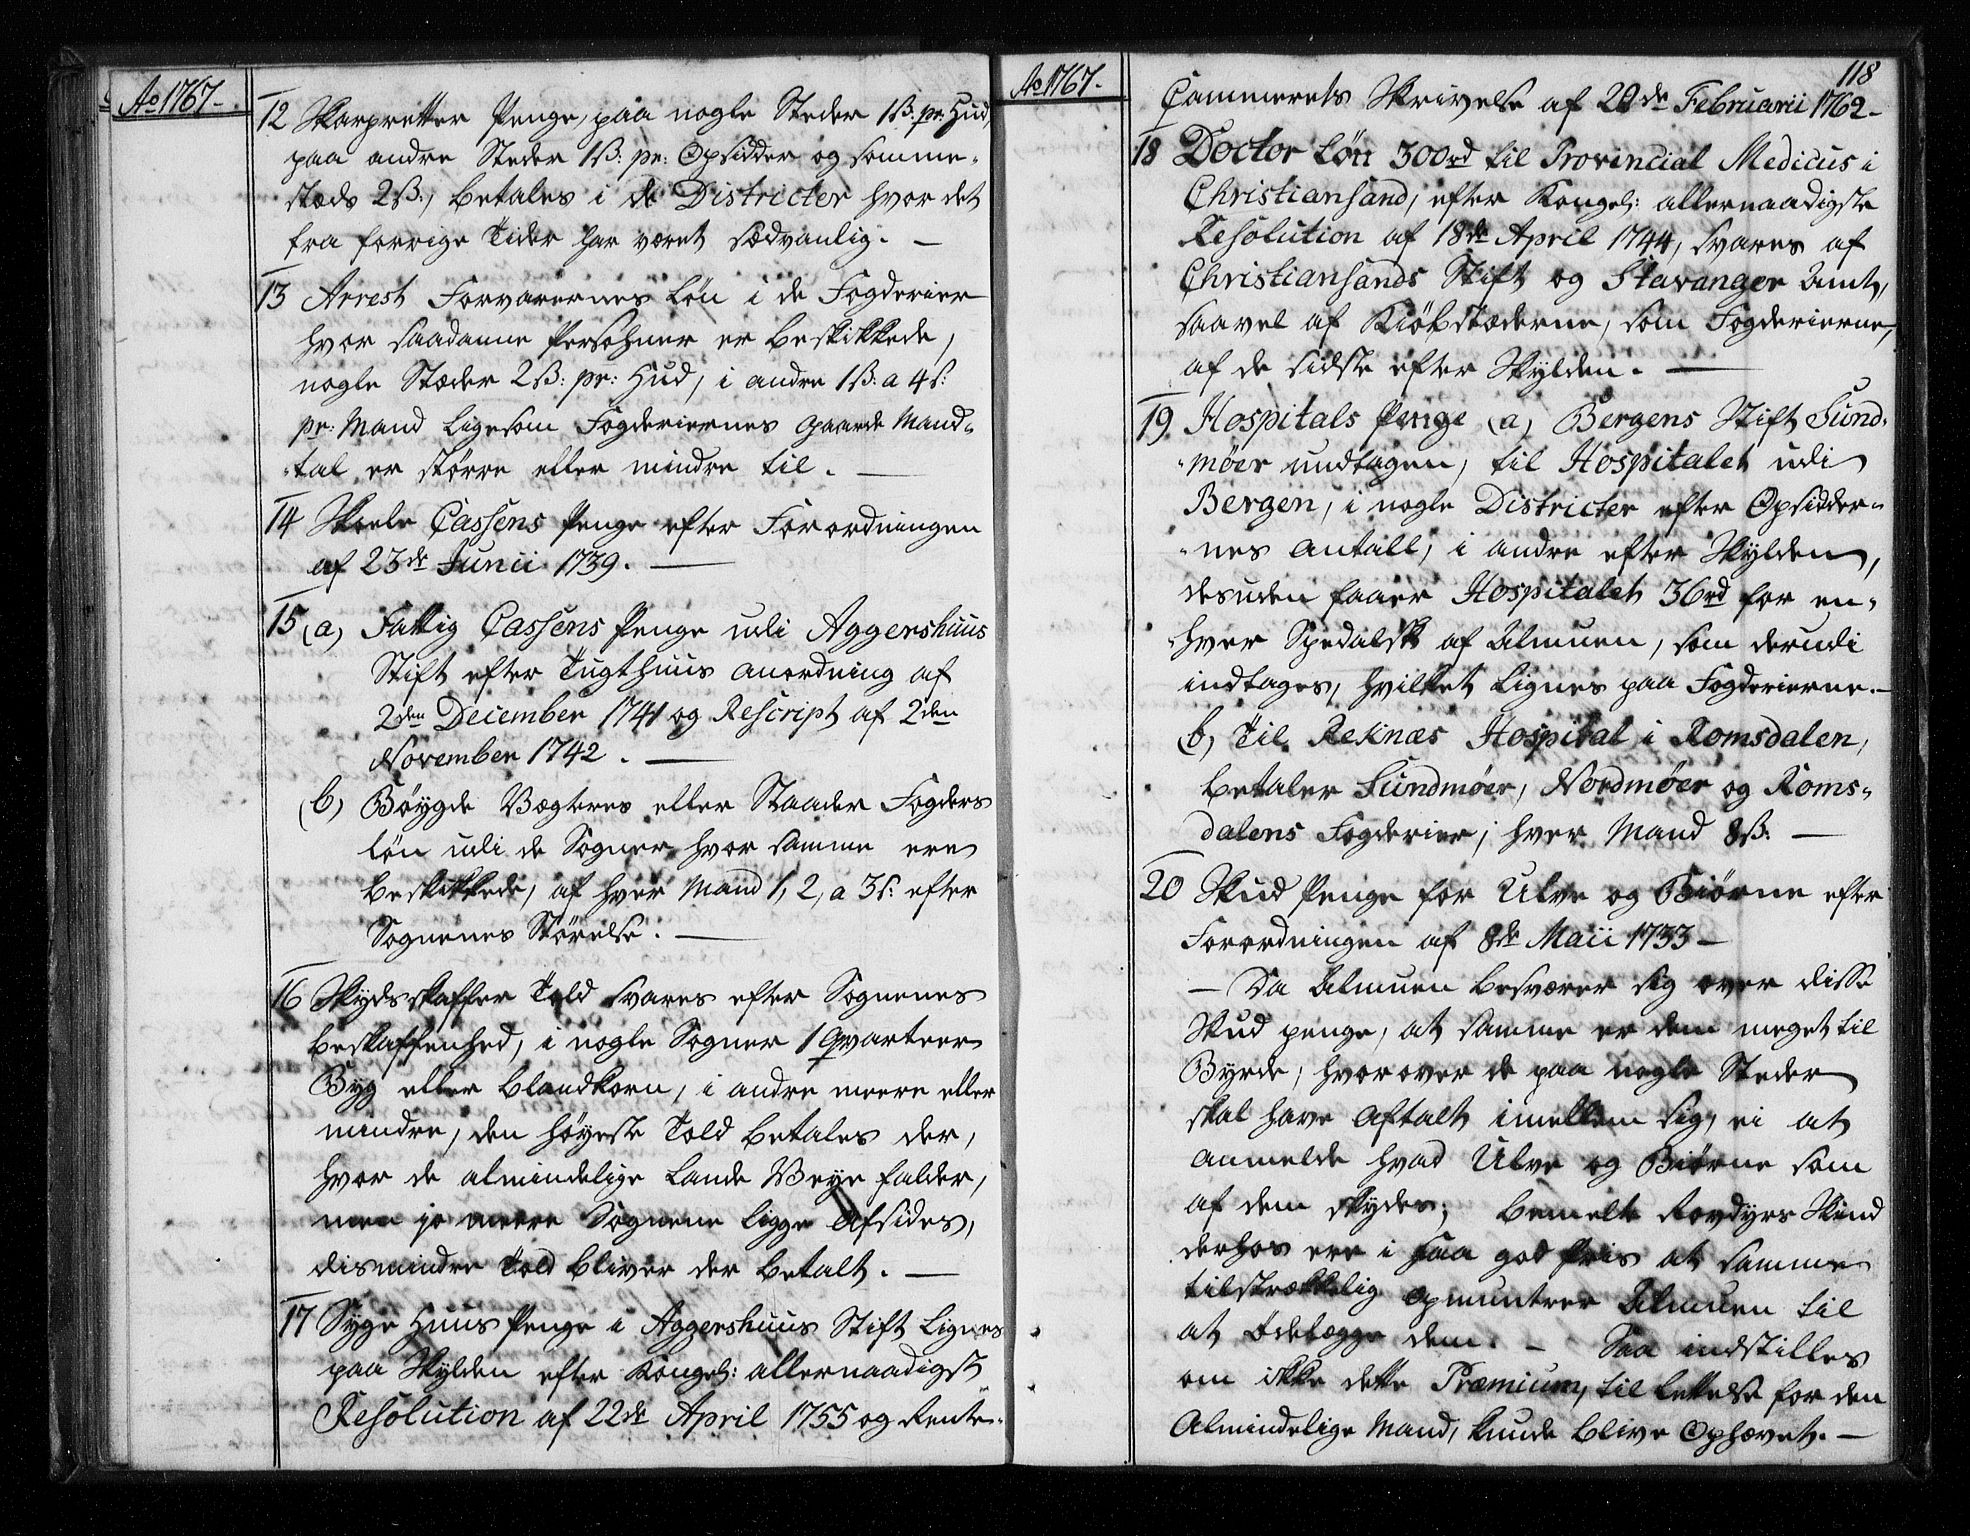 Ao 1767.
12 Skarpretter Penge, paa nogle Steder 1ß. pr. Hud,
paa andre Steder 1ß: pr: Opsidder og somme-
stæds 2ß., betales i de Districter hvor det
fra forrige Tider har været sædvanlig. —
13 Arrest Forvarernes Løn i de Fogderier
hvor saadanne Persohner er beskikkede,
nogle Stæder 2ß: pr: Hud, i andre 1ß: a 4ß:
pr: Mand ligesom Fogderiernes Gaarde Mand-
tal er større eller mindre til. —
14 Skoele Cassens Penge efter Forordningen
af 23de Junii 1739. —
15 (a) Fattig Cassens Penge udi Aggershuus
Stift efter Tugthuus Anordning af
2den December 1741 og Rescript af 2den
November 1742. —
(b) Bøygde Vægteres eller Staader Fogders
Løn udi de Sogner hvor samme ere
beskikkede, af hver Mand 1, 2, a 3ß: efter
Sognenes Størelse. —
16 Skydsskaffer Told svares efter Sognenes
beskaffenhed, i nogle Sogner 1 Qvarteer
Byg eller Blandkorn, i andre meere eller
mindre, den høyeste Told betales der,
hvor de almindelige Lande Veye falder,
men jo meere Sognene ligge Afsides,
dismindre Told bliver der betalt. —
17 Syge Huus Penge i Aggershuus Stift Lignes
paa Skylden efter Kongel: allernaadigst
Resolution af 22de April 1755 og Rente-
Ao 1767.
118
Cammerets Skrivelse af 20de Februarii 1762.
18 Doctor Løn 300rd til Provincial Medicus i
Christiansand, efter Kongel: allernaadigste
Resolution af 18de April 1744, svares af
Christiansands Stift og Stavanger Amt,
saavel af Kiøbstæderne, som Fogderierne,
af de sidste efter Skylden. —
19 Hospitals Penge (a) Bergens Stift Sund-
møer undtagen, til Hospitalet udi
Bergen, i nogle Districter efter Opsidder-
nes Antall, i andre efter Skylden,
desuden faaer Hospitalet 36rd for en-
hver Spedalsk af Almuen, som derudi
indtages, hvilket Lignes paa Fogderierne.—
(b) Til Reknæs Hospital i Romsdalen,
betaler Sundmøer, Nordmøer og Roms-
dalens Fogderier, hver Mand 8ß. —
20 Skud Penge for Ulve og Biørne efter
Forordningen af 8de Maii 1733 —
— Da Almuen besværer sig over disse
Skud penge, at samme er dem meget til
Byrde, hvorover de paa nogle Steder
skal have Aftalt imellem sig, ei at
anmelde hvad Ulve og Biørne som
af dem skydes; bemelte Rovdyrs Skind
derhos ere i saa god Priis at samme
tilstrækkelig opmuntrer Almuen til
at ødelægge dem. — Saa indstilles
om ikke dette Præmium, til Lettelse for den
Almindelige Mand, kunde blive Ophævet. —